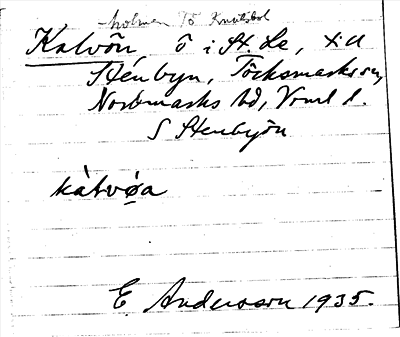 -holmen Tö Knölsbol
Kalvön ö i St. Le, till
Stenbyn, Töcksmarks sn,
Nordmarks hd, Vrml l.
S Stenbyön
kàlvøa
E. Andersson 1935.